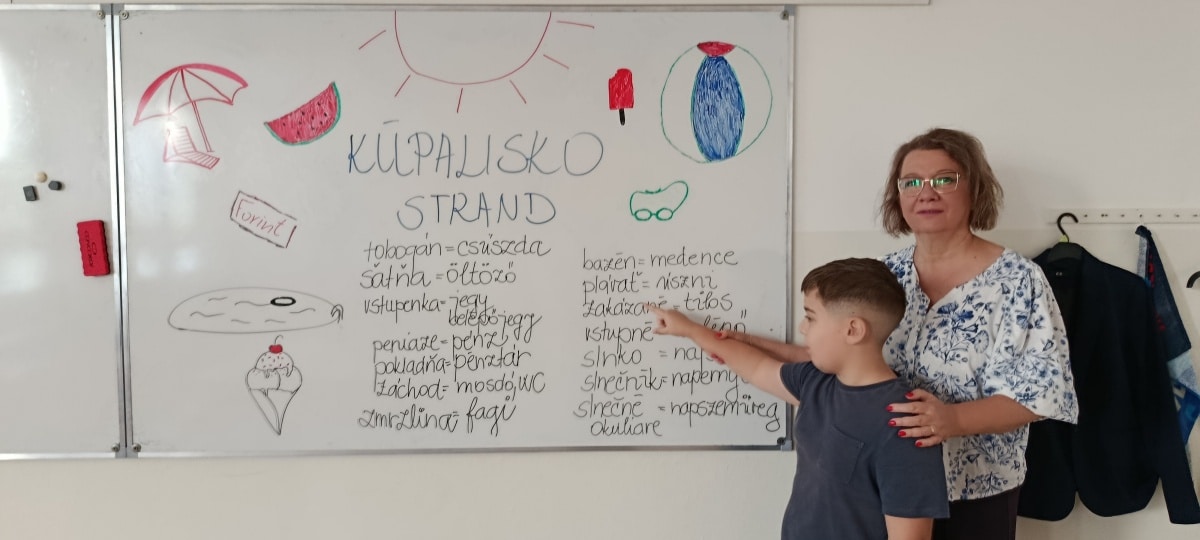 KÚPALISKO
STRAND
Forint
tobogán = csúszda
šatňa = öltöző
vstupenka = jegy
belépőjegy
peniaze = pénz
pokladňa = pénztár
záchod = mosdó, WC
zmrzlina = fagi
bazén = medence
plávať = úszni
zakázané = tilos
vstupné
slnko =
slnečník =
slnečné = napszemüveg
okuliare